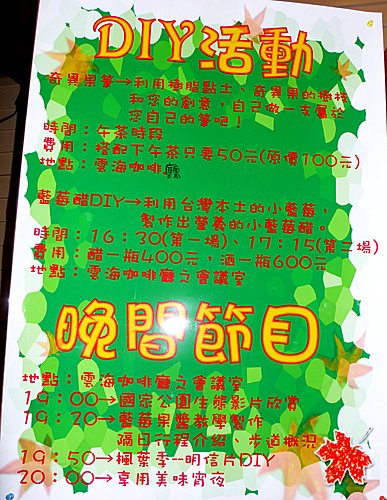 DIY活動
奇異果筆→利用樹脂黏土、奇異果的樹枝
和您的創意，自己做一支屬於
您自己的筆吧！
時間：午茶時段
費用：搭配下午茶只要50元(原價100元)
地點：雲海咖啡廳
藍莓醋DIY→利用台灣本土的小藍莓，
製作出營養的小藍莓醋。
時間：16：30(第一場)、17：15(第二場)
費用：醋一瓶400元，酒一瓶600元
地點：雲海咖啡廳之會議室
晚間節目
地點：雲海咖啡廳之會議室
19：00→國家公園生態影片欣賞
19：20→藍莓果醬教學製作
隔日行程介紹、步道概況
19：50→楓葉季--明信片DIY
20：00→享用美味宵夜